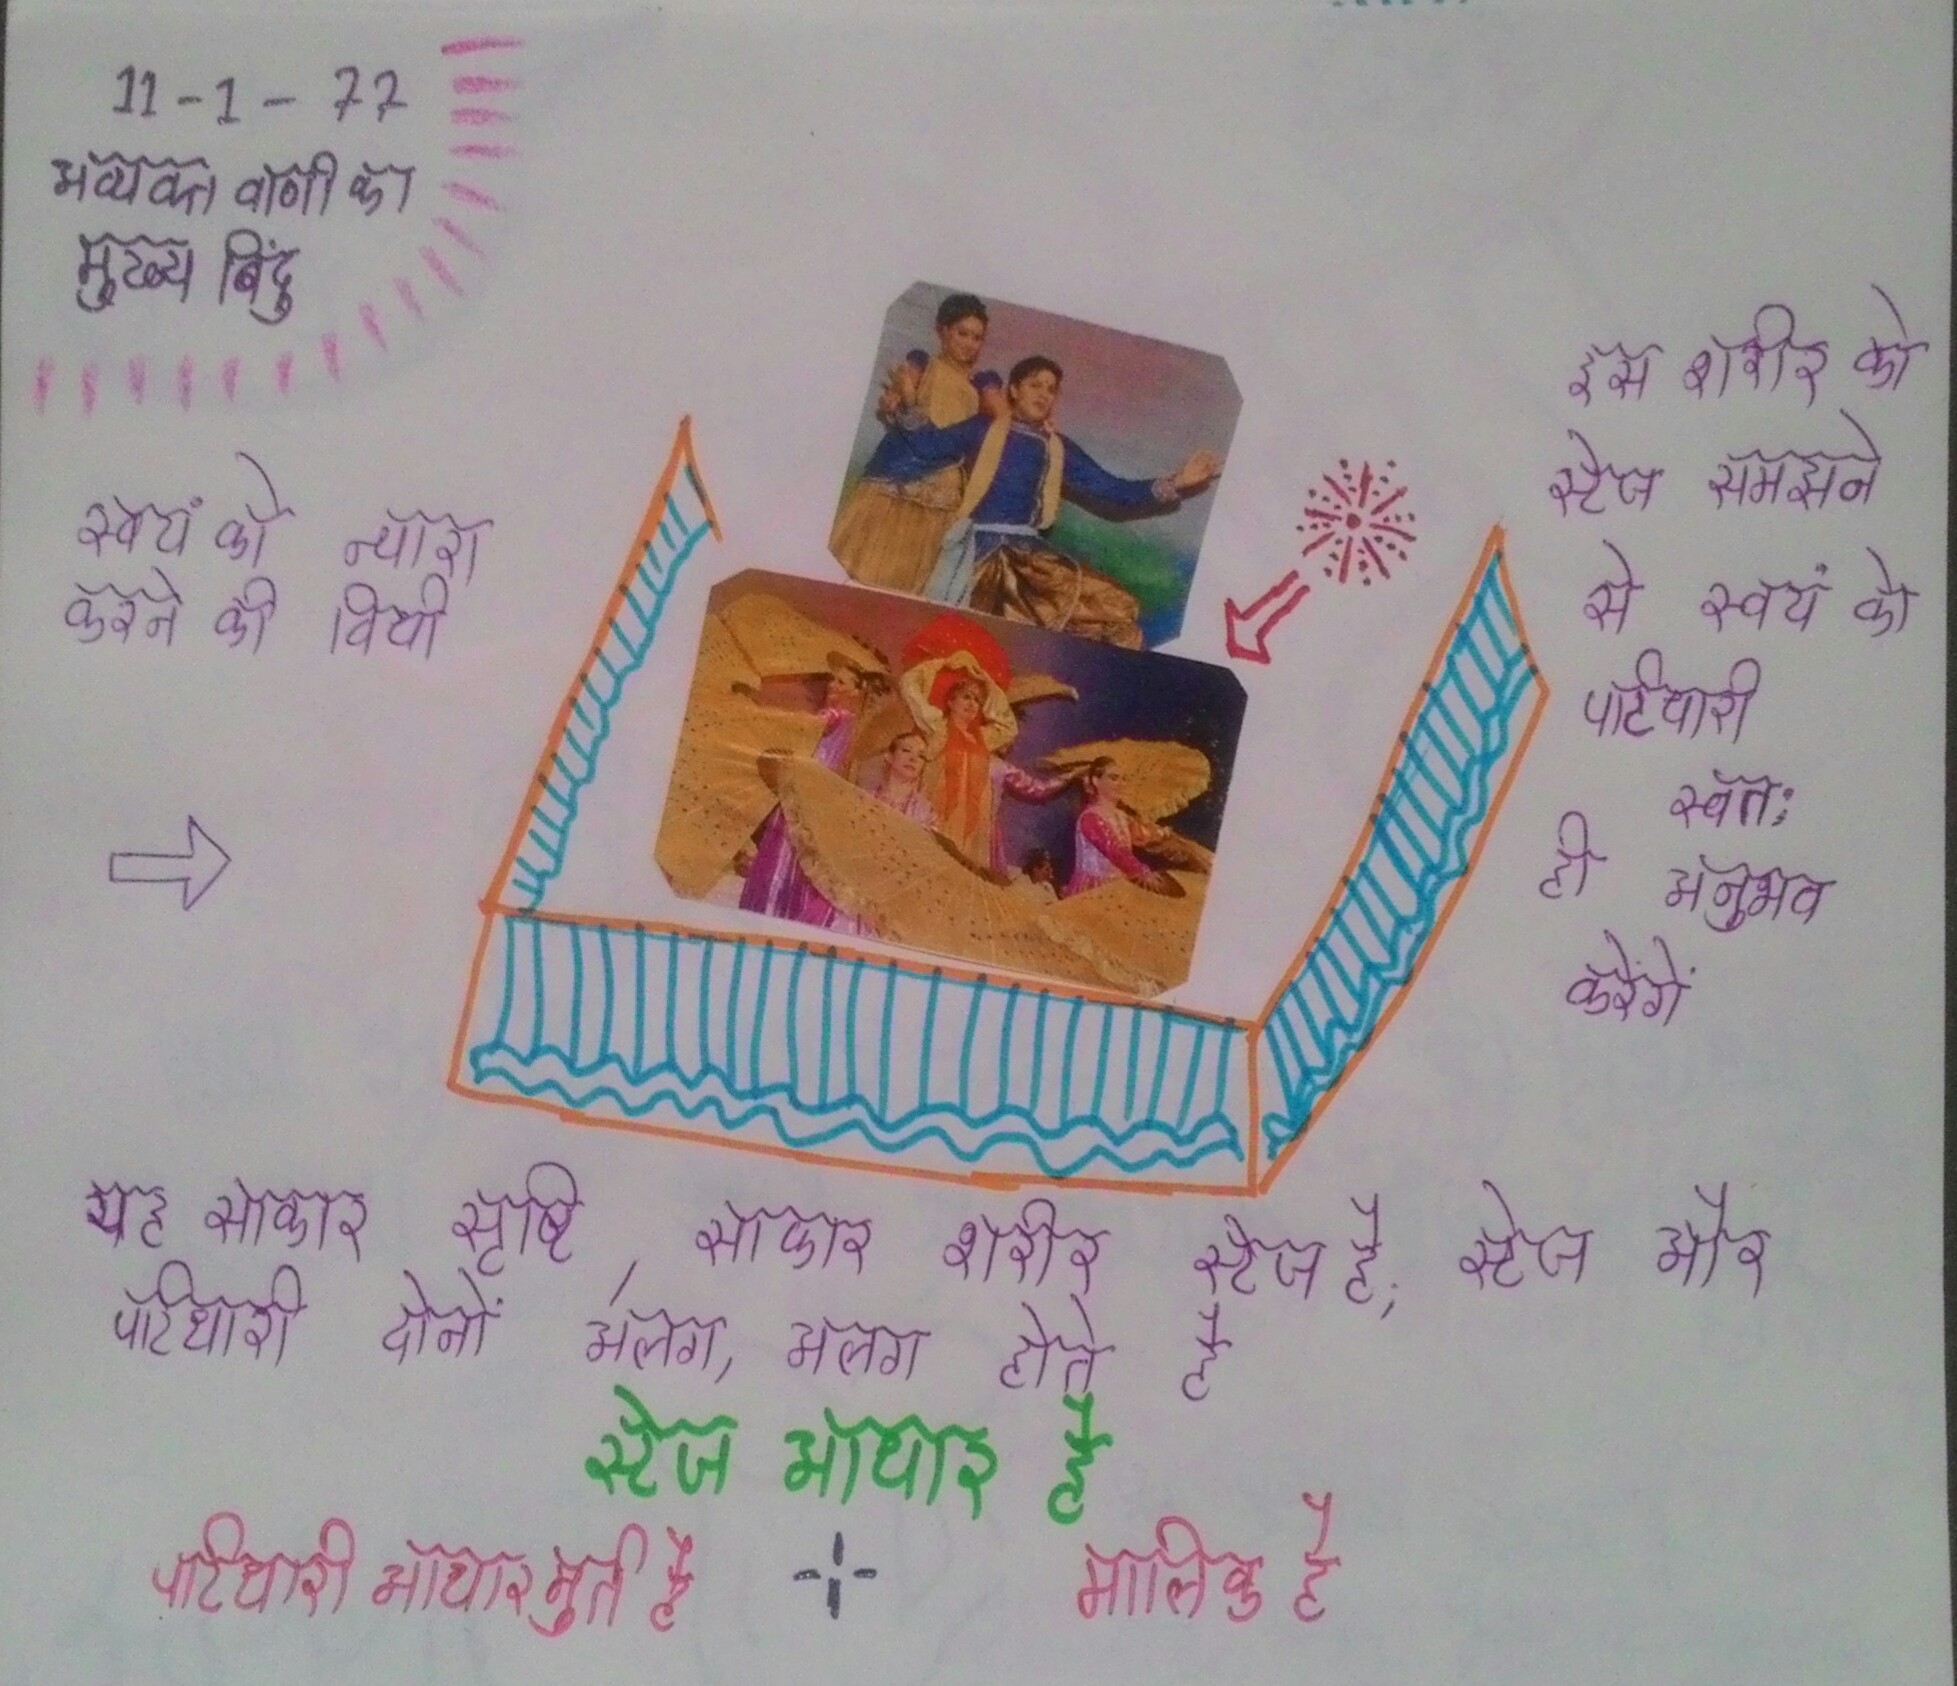 11-1-77
अव्यक्त वाणी का
मुख्य बिंदु
स्वयं को न्यारा
करने की विधी
इस शरीर को
स्टेज समझने
से स्वयं को
पार्टधारी
स्वतः
ही अनुभव
करेंगें
यह साकार सृष्टि, साकार शरीर स्टेज है; स्टेज और
पार्टधारी दोनों अलग, अलग होते है
स्टेज आधार है
पार्टधारी आधारमुर्त है + मालिक है